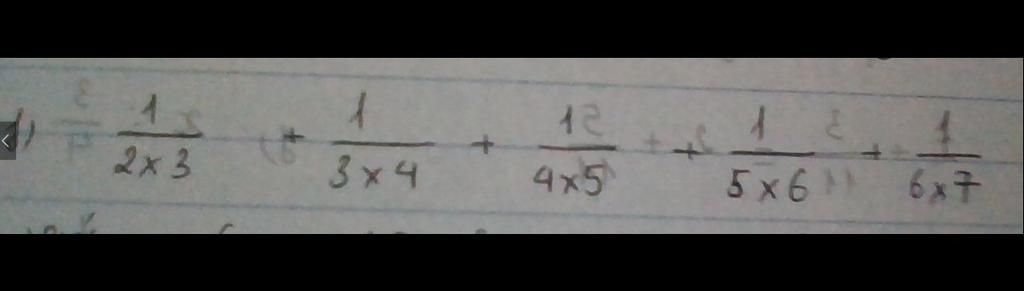 1) 1/(2×3) + 1/(3×4) + 1/(4×5) + 1/(5×6) + 1/(6×7)